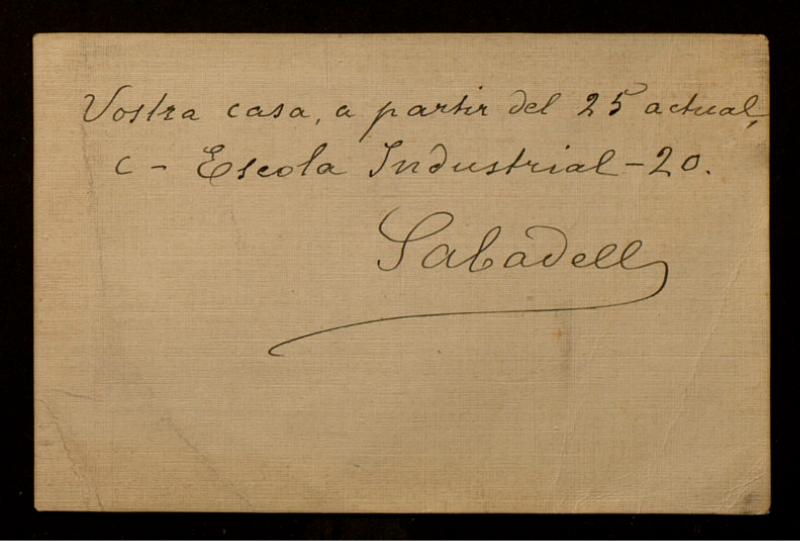 Vostra casa, a partir del 25 actual,
C - Escola Industrial - 20.
Sabadell